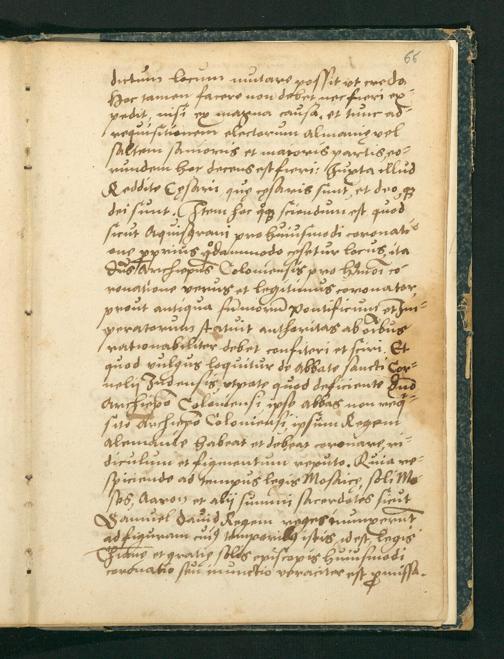 66
dictum locum mutare possit ut credo
hoc tamen facere non debet nec fieri ex-
pedit, nisi ex magna causa, et tunc ad
requisitionem electorum Almanie vel
saltem sanioris et maioris partis eo-
rundem hoc decens est fieri: Juxta illud
Reddite Cesaris que cesaris sunt, et deo, q
dei sunt. Item hoc quoq sciendum est quod
sicut Aquisgrani pro huiusmodi coronati-
one pprius qdammodo cesetur locus, ita
Dns Archiepus Coloniensis pro hmoi co-
ronatione verus et legitimus coronator
prout antiqua sumorum Pontificum et Im-
peratorum statuit authoritas ab oibus
rationabiliter debet confiteri et sciri. Et
quod vulgus loquitur de abbate sancti Cor-
nelij Indensis, utpote quod deficiente Dno
Archiepo Coloniensi ipse abbas non req-
sito Archiepo Coloniensi, ipsum Regem
Alemanie habeat et debeat coronare, ri-
diculum et figmentum reputo. Quia re-
spiciendo ad tempus legis Mosaice, soli Mo-
ses, Aaron et alij summi sacerdotes sicut
Samuel David Regem reges inunxerunt
ad figuram cuius temporis istis, idest legis
Xpiane et gratie solis episcopis huiusmodi
coronatio seu inunctio veraciter est pmissa.